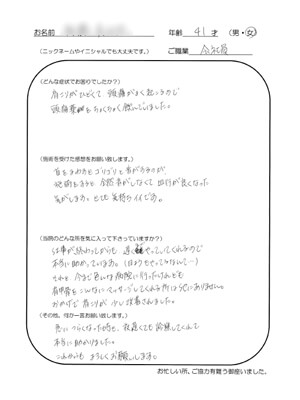 お名前 年齢 41 才 (男・女)
(ニックネームやイニシャルでも大丈夫です。) ご職業 会社員
(どんな症状でお困りでしたか?)
肩こりがひどくて 頭痛がよく起こるので
頭痛薬をちょくちょく飲んでいました。
(施術を受けた感想をお願い致します。)
首をまわすとゴリゴリと音がするのが、
施術をすると 全然音がしなくて 血行が良くなった
気がします。とても気持ちイイです。
(当院のどんな所を気に入って下さっていますか?)
仕事が終わってからも 遅くやってくれるので
本当に助かっています。
それと 今まで色んな病院に行ったけれども
肩甲骨をこんなにマッサージしてくれる所はうちにありません。
おかげで肩こりが少し改善されました。
(その他、何か一言お願い致します。)
急につらくなった時も、夜遅くても診察してくれて
本当に助かりました。
これからも よろしくお願いします。
お忙しい所、ご協力有難う御座いました。